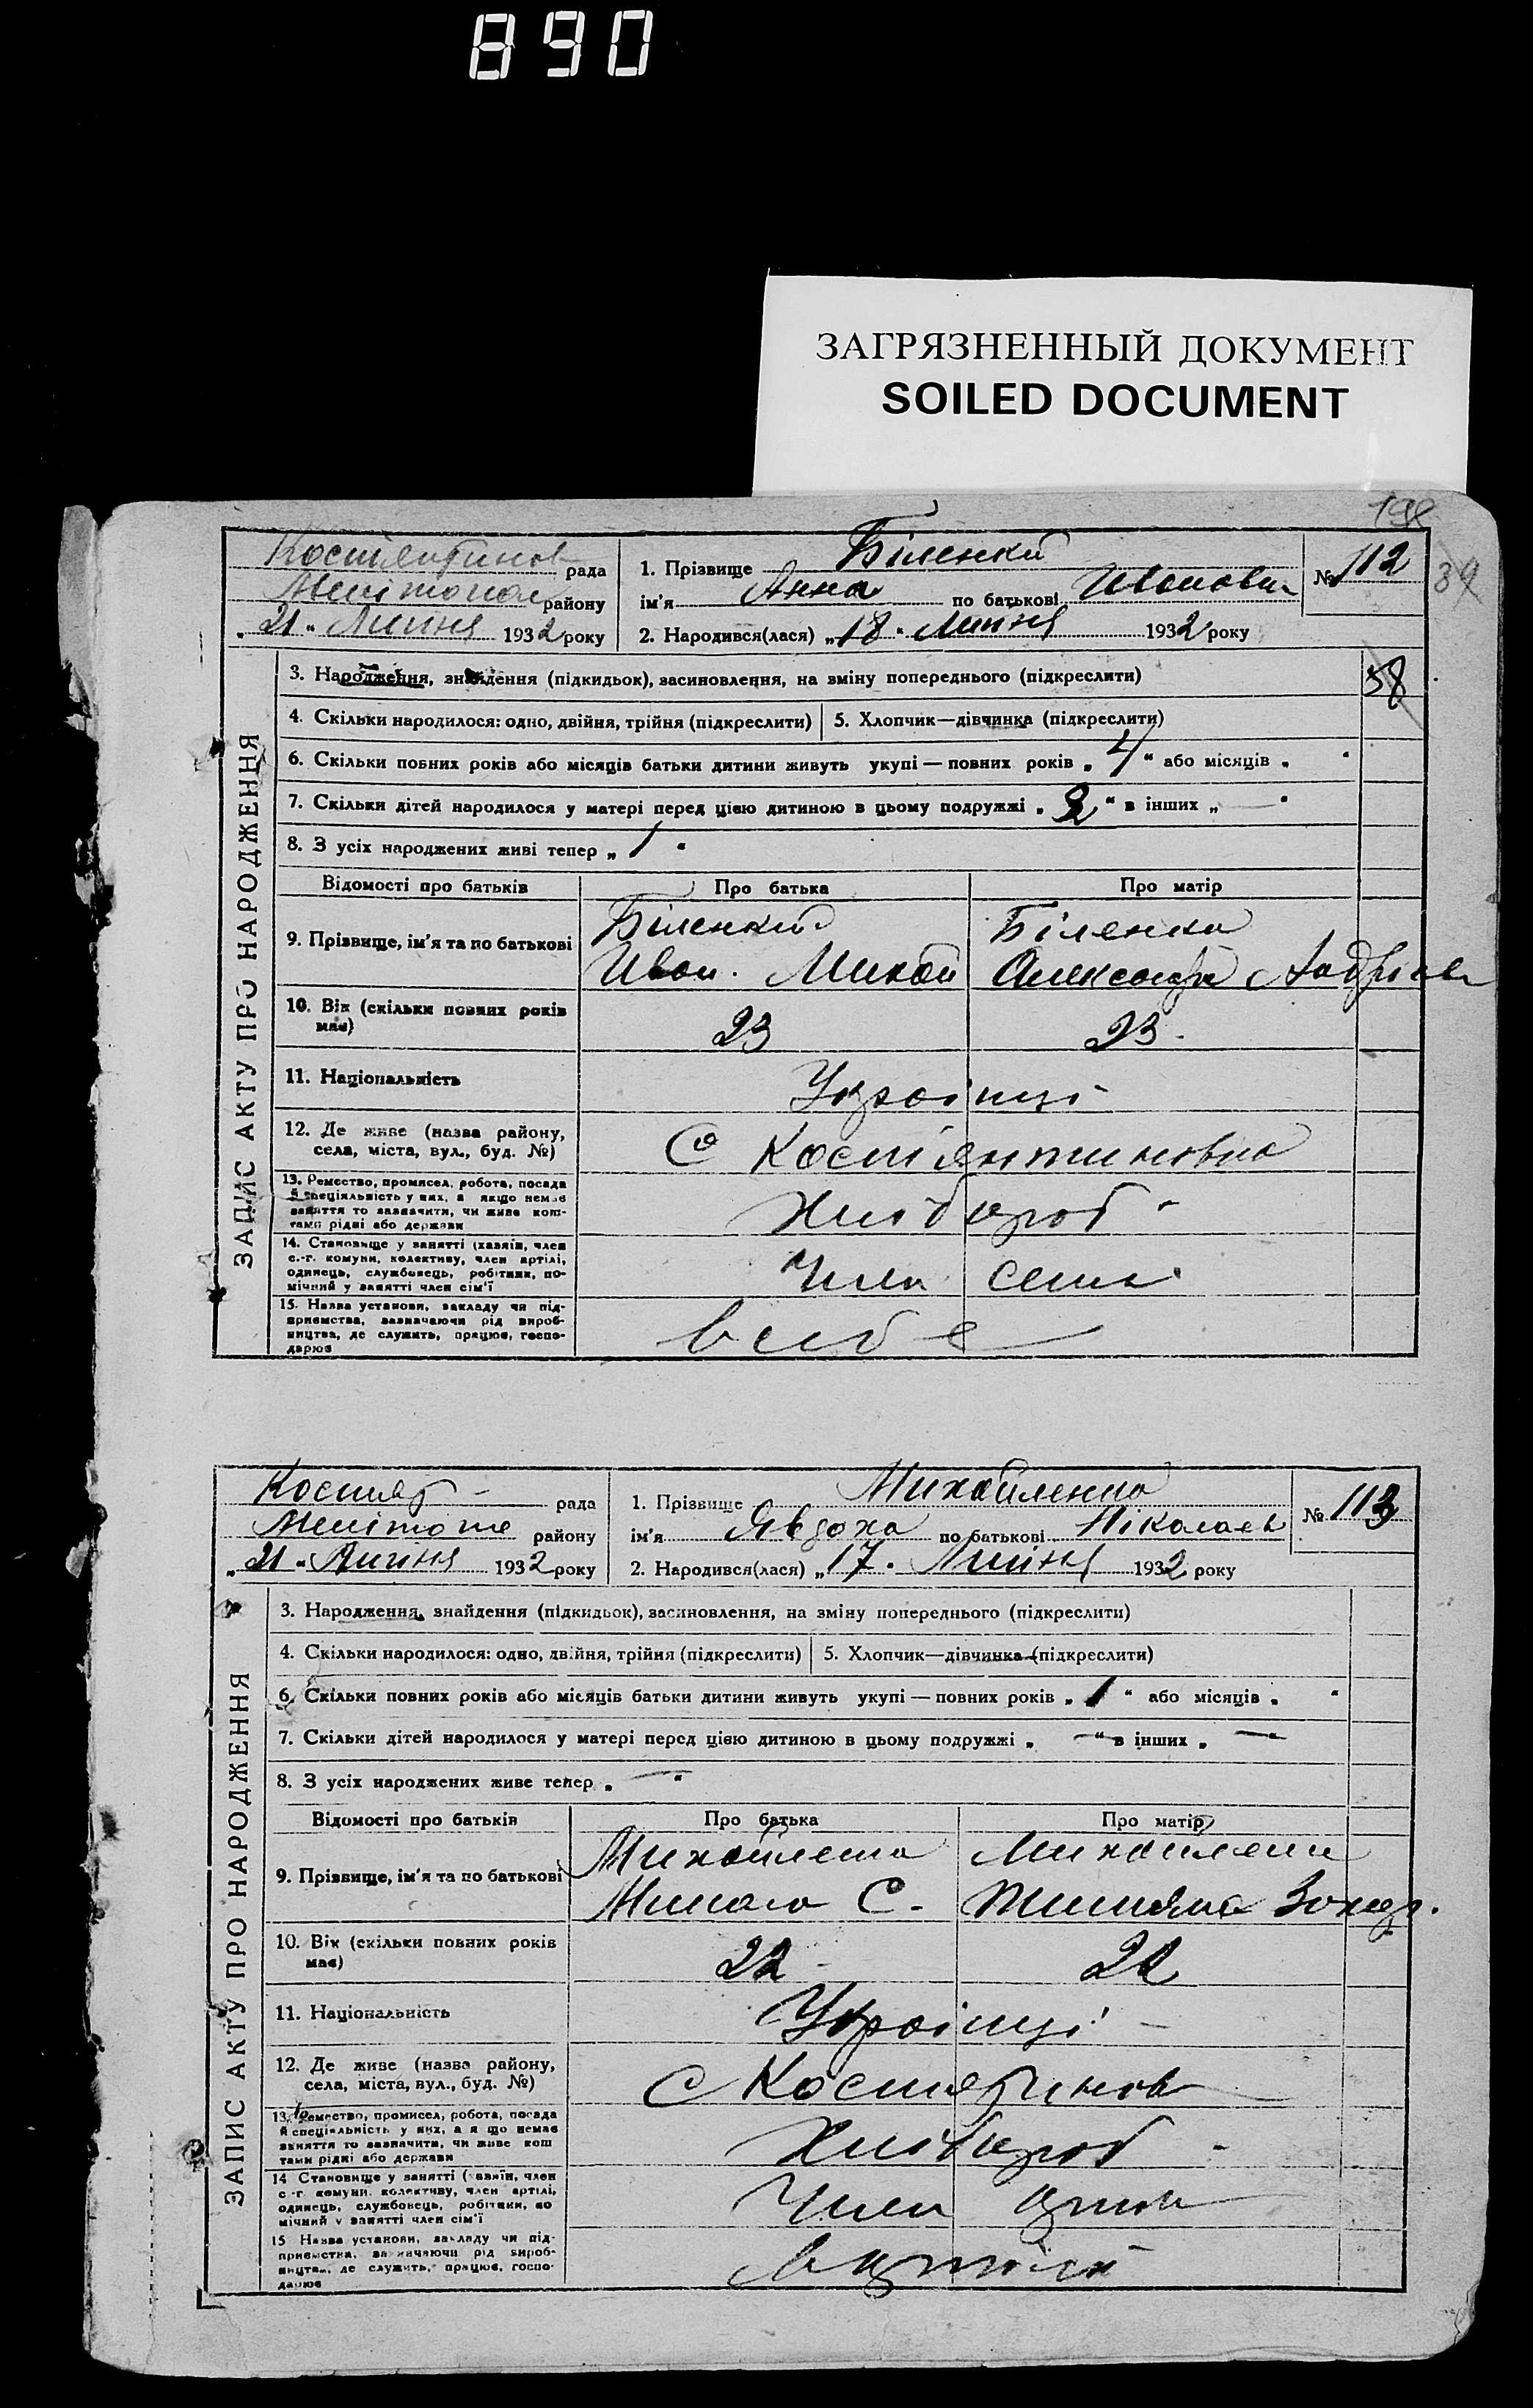 890
ЗАГРЯЗНЕННЫЙ ДОКУМЕНТ
SOILED DOCUMENT
198
39
58
ЗАПИС АКТУ ПРО НАРОДЖЕННЯ
рада
району
„21“ Липня 1932 року
1. Прізвище Біленки
ім'я Анна по батькові
2. Народився(лася) „18“ Липня 1932 року
№ 112
3. Народження, знайдення (підкидьок), засиновлення, на зміну попереднього (підкреслити)
4. Скільки народилося: одно, двійня, трійня (підкреслити) 5. Хлопчик—дівчинка (підкреслити)
6. Скільки повних років або місяців батьки дитини живуть укупі — повних років „4“ або місяців „ “
7. Скільки дітей народилося у матері перед цією дитиною в цьому подружжі „2“ в інших „—“
8. З усіх народжених живі тепер „1“
Відомості про батьків Про батька Про матір
9. Прізвище, ім'я та по батькові Біленкий Біленка
Иван.
10. Вік (скільки повних років має) 23 23.
11. Національність Українці
12. Де живе (назва району, села, міста, вул., буд. №) С Костянтиновка
13. Ремество, промисел, робота, посада й спеціяльність у них, а якщо немає заняття то зазначити, чи живе коштами рідні або держави Хлібороб
14. Становище у занятті (хазяїн, член с.-г. комуни, колективу, член артілі, одинець, службовець, робітник, помічний у занятті член сім'ї
15. Назва установи, закладу чи підприємства, зазначаючи рід виробництва, де служить, працює, господарює
ЗАПИС АКТУ ПРО НАРОДЖЕННЯ
рада
району
„21“ Липня 1932 року
1. Прізвище Михайленко
ім'я Явдоха по батькові Ніколаев
2. Народився(лася) „17. Липня 1932 року
№ 113
3. Народження, знайдення (підкидьок), засиновлення, на зміну попереднього (підкреслити)
4. Скільки народилося: одно, двійня, трійня (підкреслити) 5. Хлопчик—дівчинка (підкреслити)
6. Скільки повних років або місяців батьки дитини живуть укупі — повних років „1“ або місяців „ “
7. Скільки дітей народилося у матері перед цією дитиною в цьому подружжі „—“ в інших „—“
8. З усіх народжених живе тепер „—“
Відомості про батьків Про батька Про матір
9. Прізвище, ім'я та по батькові
С.
10. Вік (скільки повних років має) 22
11. Національність Українці
12. Де живе (назва району, села, міста, вул., буд. №) С
13. Ремество, промисел, робота, посада й спеціяльність у них, а якщо немає заняття то зазначити, чи живе коштами рідні або держави Хлібороб
14 Становище у занятті (хазяїн, член с.-г. комуни, колективу, член артілі, одинець, службовець, робітник, помічний у занятті член сім'ї Член
15 Назва установи, закладу чи підприємства, зазначаючи рід виробництва, де служить, працює, господарює